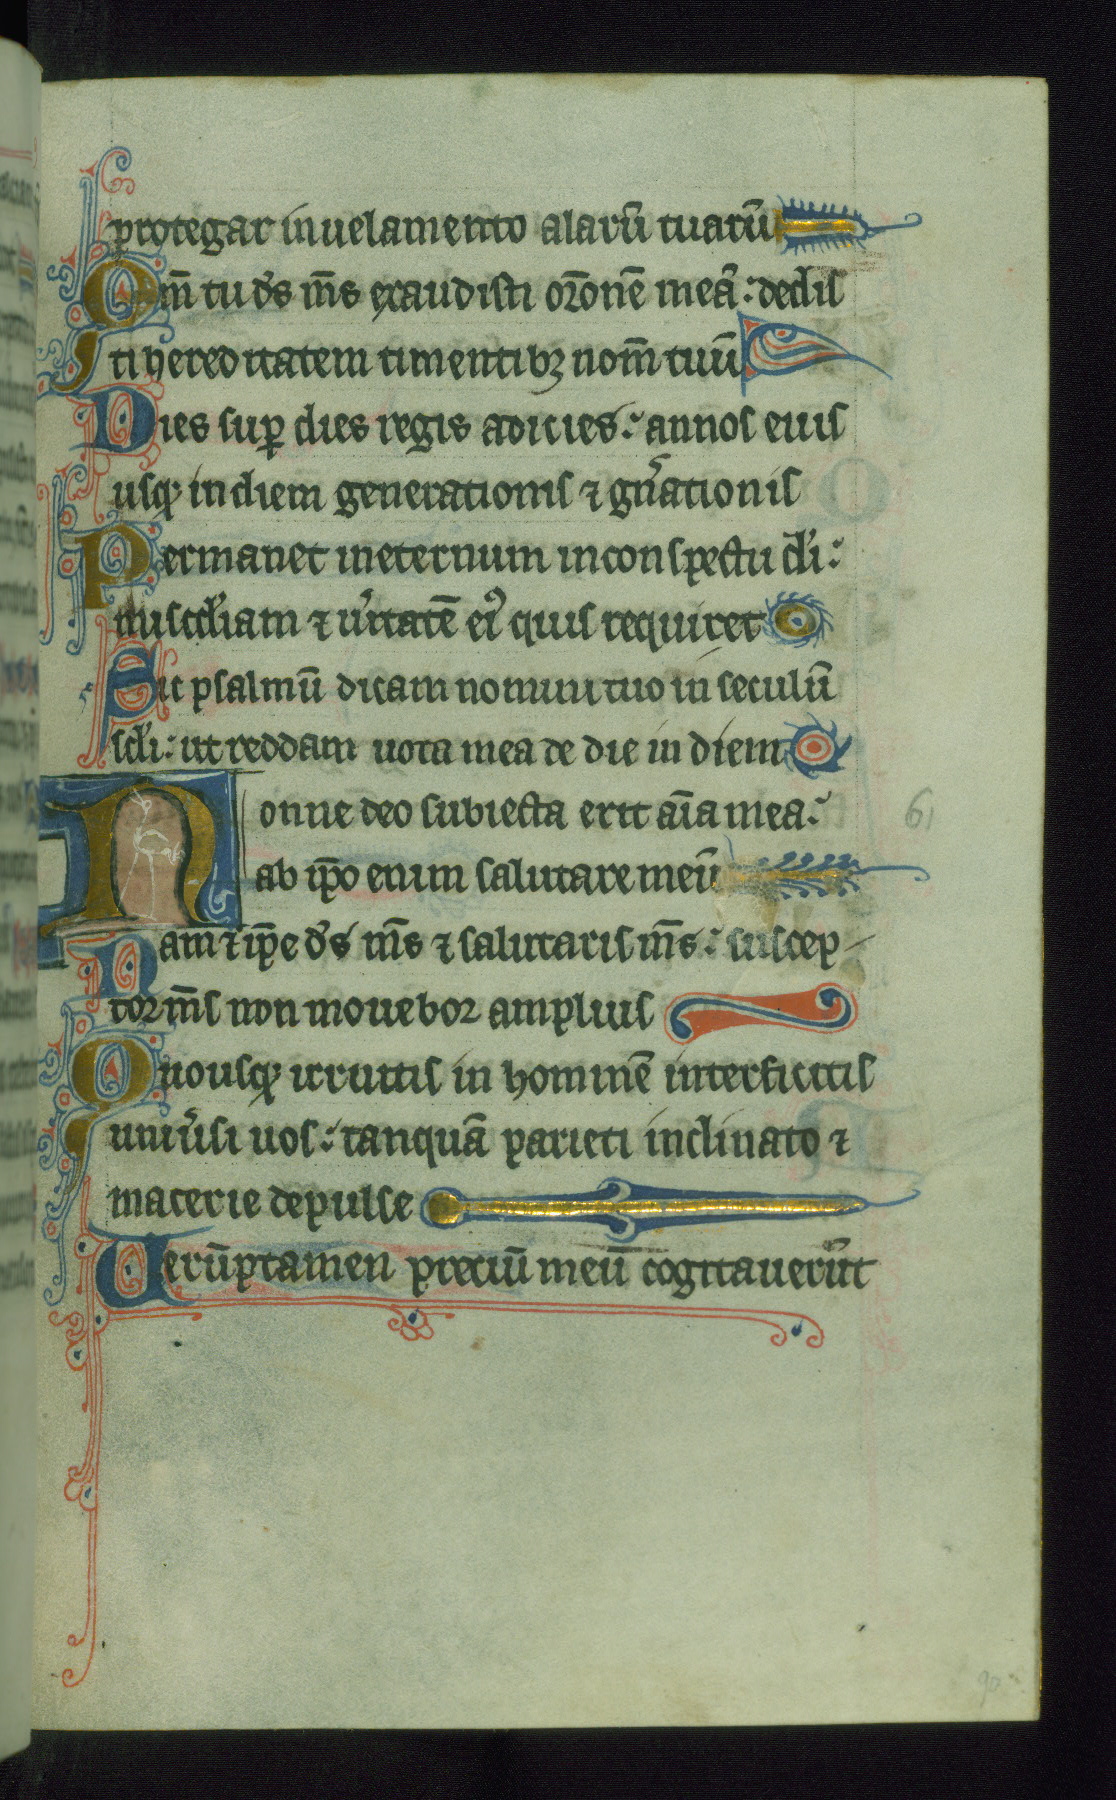 protegar in uelamento alarū tuarū
Qm̄ tu ds̄ ms̄ exaudisti or̄onē meā: dedis
ti hereditatem timentibꝫ nom̄ tuū
Dies sup̱ dies regis adicies: annos eius
usqꝫ in diem generationis ⁊ gn̄ationis
Permanet in eternum in conspectu dī:
misc̄diam ⁊ ūitatē eiꝰ quis requiret
Sic psalmū dicam nomini tuo in seculū
scl̄i: ut reddam uota mea de die in diem
Nonne deo subiecta erit aīa mea:
ab ip̄o enim salutare meū
Nam ⁊ ip̄e ds̄ ms̄ ⁊ salutaris ms̄: suscep
tor ms̄ non mouebor amplius
Quousqꝫ irruitis in hominē interficitis
uniūsi uos: tanquā parieti inclinato ⁊
macerie depulse
Uerūptamen preciū meū cogitauerūt
61
90